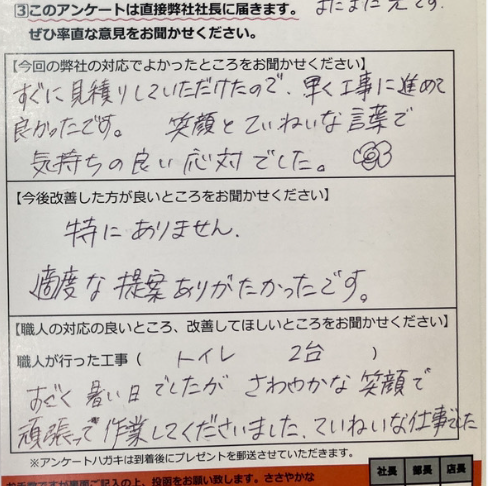 ③このアンケートは直接弊社社長に届きます。 まだまだ元です.
ぜひ率直な意見をお聞かせください。
【今回の弊社の対応でよかったところをお聞かせください】
すぐに見積りしていただけたので、早く工事に進めて
良かったです。 笑顔とていねいな言葉で
気持ちの良い応対でした。
【今後改善した方が良いところをお聞かせください】
特にありません.
適度な提案ありがたかったです。
【職人の対応の良いところ、改善してほしいところをお聞かせください】
職人が行った工事（ トイレ 2台 ）
すごく暑い日でしたが さわやかな笑顔で
頑張って作業してくださいました、ていねいな仕事でした
※アンケートハガキは到着後にプレゼントを郵送させていただきます。
お手数ですが裏面ご記入の上、投函をお願い致します。ささやかな
社長 部長 店長